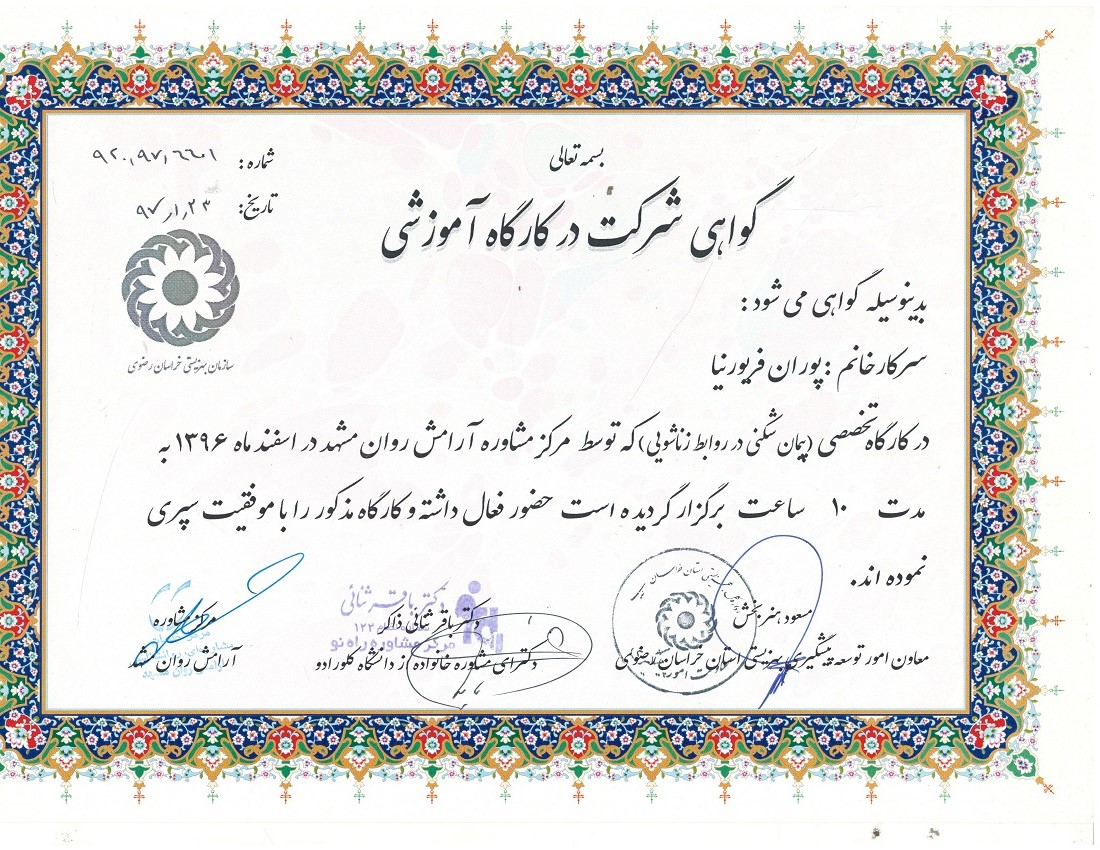 بسمه تعالی
شماره: ۹۲۰/۹۷/۶۶۰۱
تاریخ: ۹۷/۱/۲۳
سازمان بهزیستی خراسان رضوی
گواهی شرکت در کارگاه آموزشی
بدینوسیله گواهی می شود :
سرکار خانم : پوران فریورنیا
در کارگاه تخصصی (پیمان شکنی در روابط زناشویی) که توسط مرکز مشاوره آرامش روان مشهد در اسفند ماه ۱۳۹۶ به
مدت ۱۰ ساعت برگزار گردیده است حضور فعال داشته و کارگاه مذکور را با موفقیت سپری
نموده اند.
مسعود هنربخش
معاون امور توسعه پیشگیری بهزیستی استان خراسان رضوی
دکتر باقر ثنائی
مرکز مشاوره راه نو
دکتر باقر ثنائی ذاکر
دکترای مشاوره خانواده از دانشگاه کلورادو
مرکز مشاوره
آرامش روان مشهد